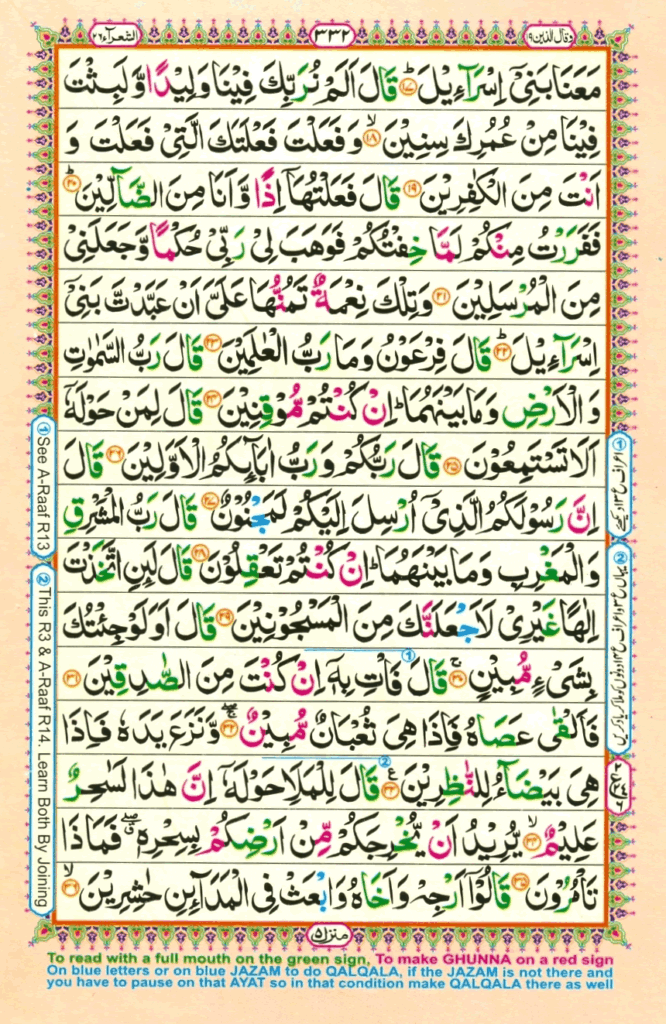 وقال الذین ۱۹
۳۳۲
الشعرآء ۲۶
مَعَنَا بَنِیْۤ اِسْرَآءِیْلَ ؕ﴿۱۷﴾ قَالَ اَلَمْ نُرَبِّكَ فِیْنَا وَلِیْدًا وَّ لَبِثْتَ
فِیْنَا مِنْ عُمُرِكَ سِنِیْنَ ۙ﴿۱۸﴾ وَ فَعَلْتَ فَعْلَتَكَ الَّتِیْ فَعَلْتَ وَ
اَنْتَ مِنَ الْكٰفِرِیْنَ ﴿۱۹﴾ قَالَ فَعَلْتُهَاۤ اِذًا وَّ اَنَا مِنَ الضَّآلِّیْنَ ؕ﴿۲۰﴾
فَفَرَرْتُ مِنْكُمْ لَمَّا خِفْتُكُمْ فَوَهَبَ لِیْ رَبِّیْ حُكْمًا وَّ جَعَلَنِیْ
مِنَ الْمُرْسَلِیْنَ ﴿۲۱﴾ وَ تِلْكَ نِعْمَةٌ تَمُنُّهَا عَلَیَّ اَنْ عَبَّدْتَّ بَنِیْۤ
اِسْرَآءِیْلَ ؕ﴿۲۲﴾ قَالَ فِرْعَوْنُ وَ مَا رَبُّ الْعٰلَمِیْنَ ﴿۲۳﴾ قَالَ رَبُّ السَّمٰوٰتِ
وَ الْاَرْضِ وَ مَا بَیْنَهُمَا ؕ اِنْ كُنْتُمْ مُّوْقِنِیْنَ ﴿۲۴﴾ قَالَ لِمَنْ حَوْلَهٗۤ
اَلَا تَسْتَمِعُوْنَ ﴿۲۵﴾ قَالَ رَبُّكُمْ وَ رَبُّ اٰبَآىِٕكُمُ الْاَوَّلِیْنَ ﴿۲۶﴾ قَالَ
اِنَّ رَسُوْلَكُمُ الَّذِیْۤ اُرْسِلَ اِلَیْكُمْ لَمَجْنُوْنٌ ﴿۲۷﴾ قَالَ رَبُّ الْمَشْرِقِ
وَ الْمَغْرِبِ وَ مَا بَیْنَهُمَا ؕ اِنْ كُنْتُمْ تَعْقِلُوْنَ ﴿۲۸﴾ قَالَ لَىِٕنِ اتَّخَذْتَ
اِلٰهًا غَیْرِیْ لَاَجْعَلَنَّكَ مِنَ الْمَسْجُوْنِیْنَ ﴿۲۹﴾ قَالَ اَوَ لَوْ جِئْتُكَ
بِشَیْءٍ مُّبِیْنٍ ۚ﴿۳۰﴾ قَالَ فَاْتِ بِهٖۤ اِنْ كُنْتَ مِنَ الصّٰدِقِیْنَ ﴿۳۱﴾
فَاَلْقٰی عَصَاهُ فَاِذَا هِیَ ثُعْبَانٌ مُّبِیْنٌ ۚۖ﴿۳۲﴾ وَّ نَزَعَ یَدَهٗ فَاِذَا
هِیَ بَیْضَآءُ لِلنّٰظِرِیْنَ ﴿۳۳﴾ ع قَالَ لِلْمَلَاِ حَوْلَهٗۤ اِنَّ هٰذَا لَسٰحِرٌ
عَلِیْمٌ ۙ﴿۳۴﴾ یُّرِیْدُ اَنْ یُّخْرِجَكُمْ مِّنْ اَرْضِكُمْ بِسِحْرِهٖ ۖۗ فَمَا ذَا
تَاْمُرُوْنَ ﴿۳۵﴾ قَالُوْۤا اَرْجِهْ وَ اَخَاهُ وَ ابْعَثْ فِی الْمَدَآىِٕنِ حٰشِرِیْنَ ۙ﴿۳۶﴾
منزل ۵
① See A-Raaf R13
② This R3 & A-Raaf R14. Learn Both By Joining
To read with a full mouth on the green sign, To make GHUNNA on a red sign
On blue letters or on blue JAZAM to do QALQALA, if the JAZAM is not there and
you have to pause on that AYAT so in that condition make QALQALA there as well